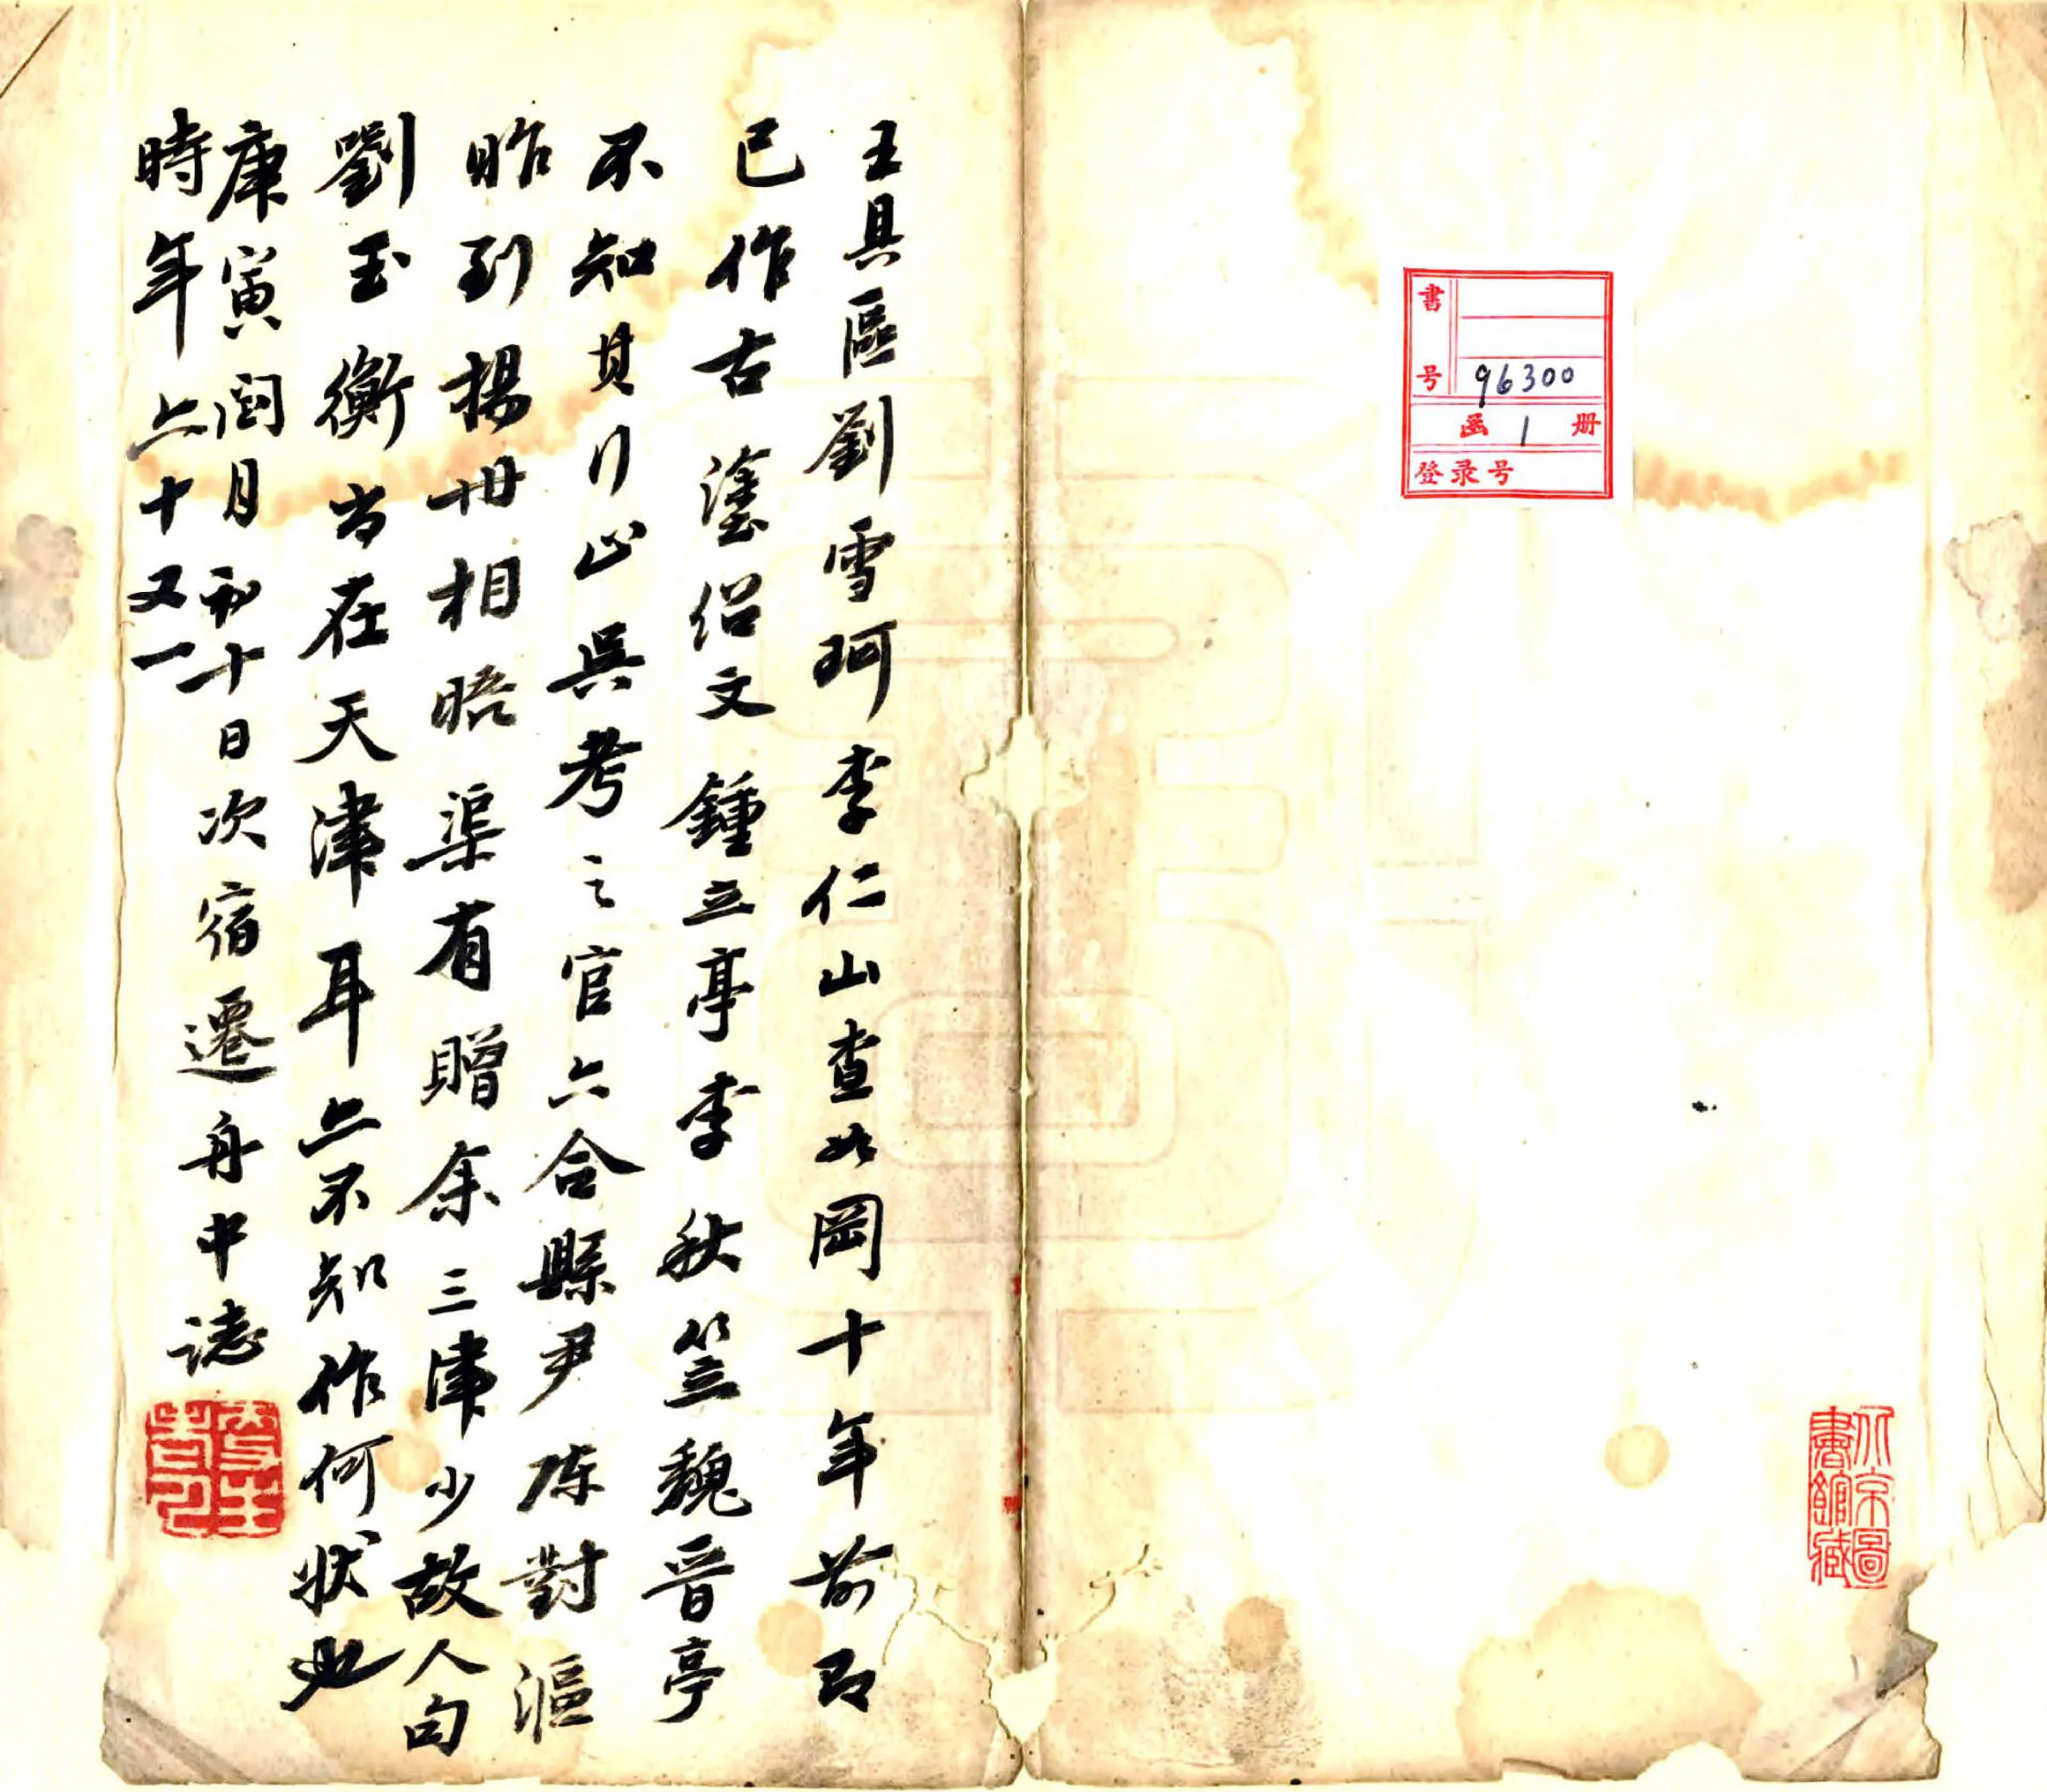 書号 96300
函 1 册
登录号
北京圖書館藏
王具區劉雪珂李仁山查如岡十年前即
已作古塗紹文鍾立亭李秋笠魏晉亭
不知其行止吳考之官六合縣尹陈對漚
昨到揚州相晤渠有贈余三津少故人句
劉玉衡尚在天津耳亦不知作何狀也
庚寅閏月初十日次宿遷舟中誌
時年六十又一